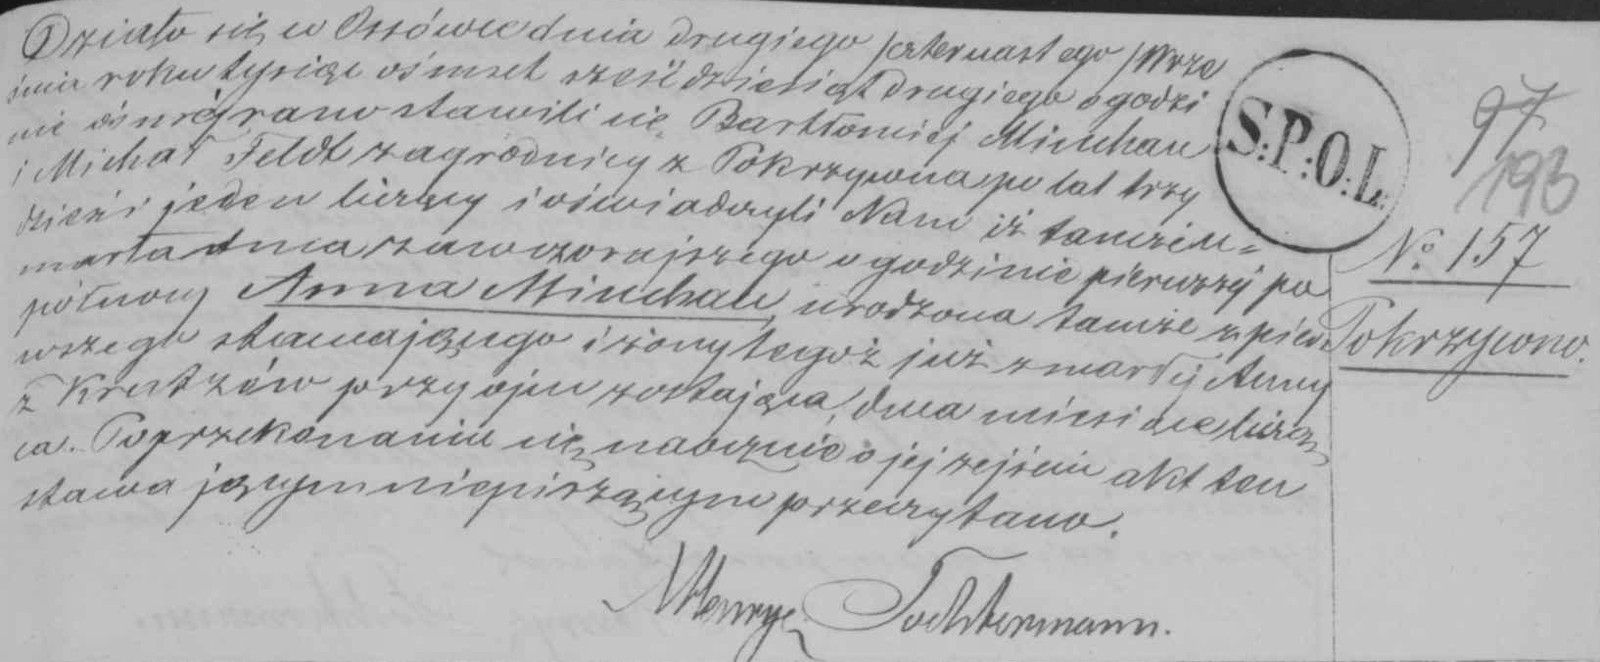 Działo się w Ossówce dnia drugiego /czternastego/ Wrze
śnia roku tysiąc ośmset sześćdziesiąt drugiego o godzi
nie ósmej rano stawili się Bartłomiej Minchau
i Michał Feldt zagrodnicy z Pokrzywna po lat trzy
dzieści jeden liczący i oświadczyli Nam iż tamże u=
marła dnia zawczorajszego o godzinie pierwszej po
północy Anna Minchau, urodzona tamże z pier
wszego stawającego i żony tegoż już zmarłej Anny
z Krutzów przy ojcu zostająca, dwa miesiące licząc
ca. Po przekonaniu się naocznie o jej zejściu akt ten
stawającym niepiszącym przeczytano.
Henryc Tochtermann.
S.P.O.L.
97
193
No. 157
Pokrzywno.